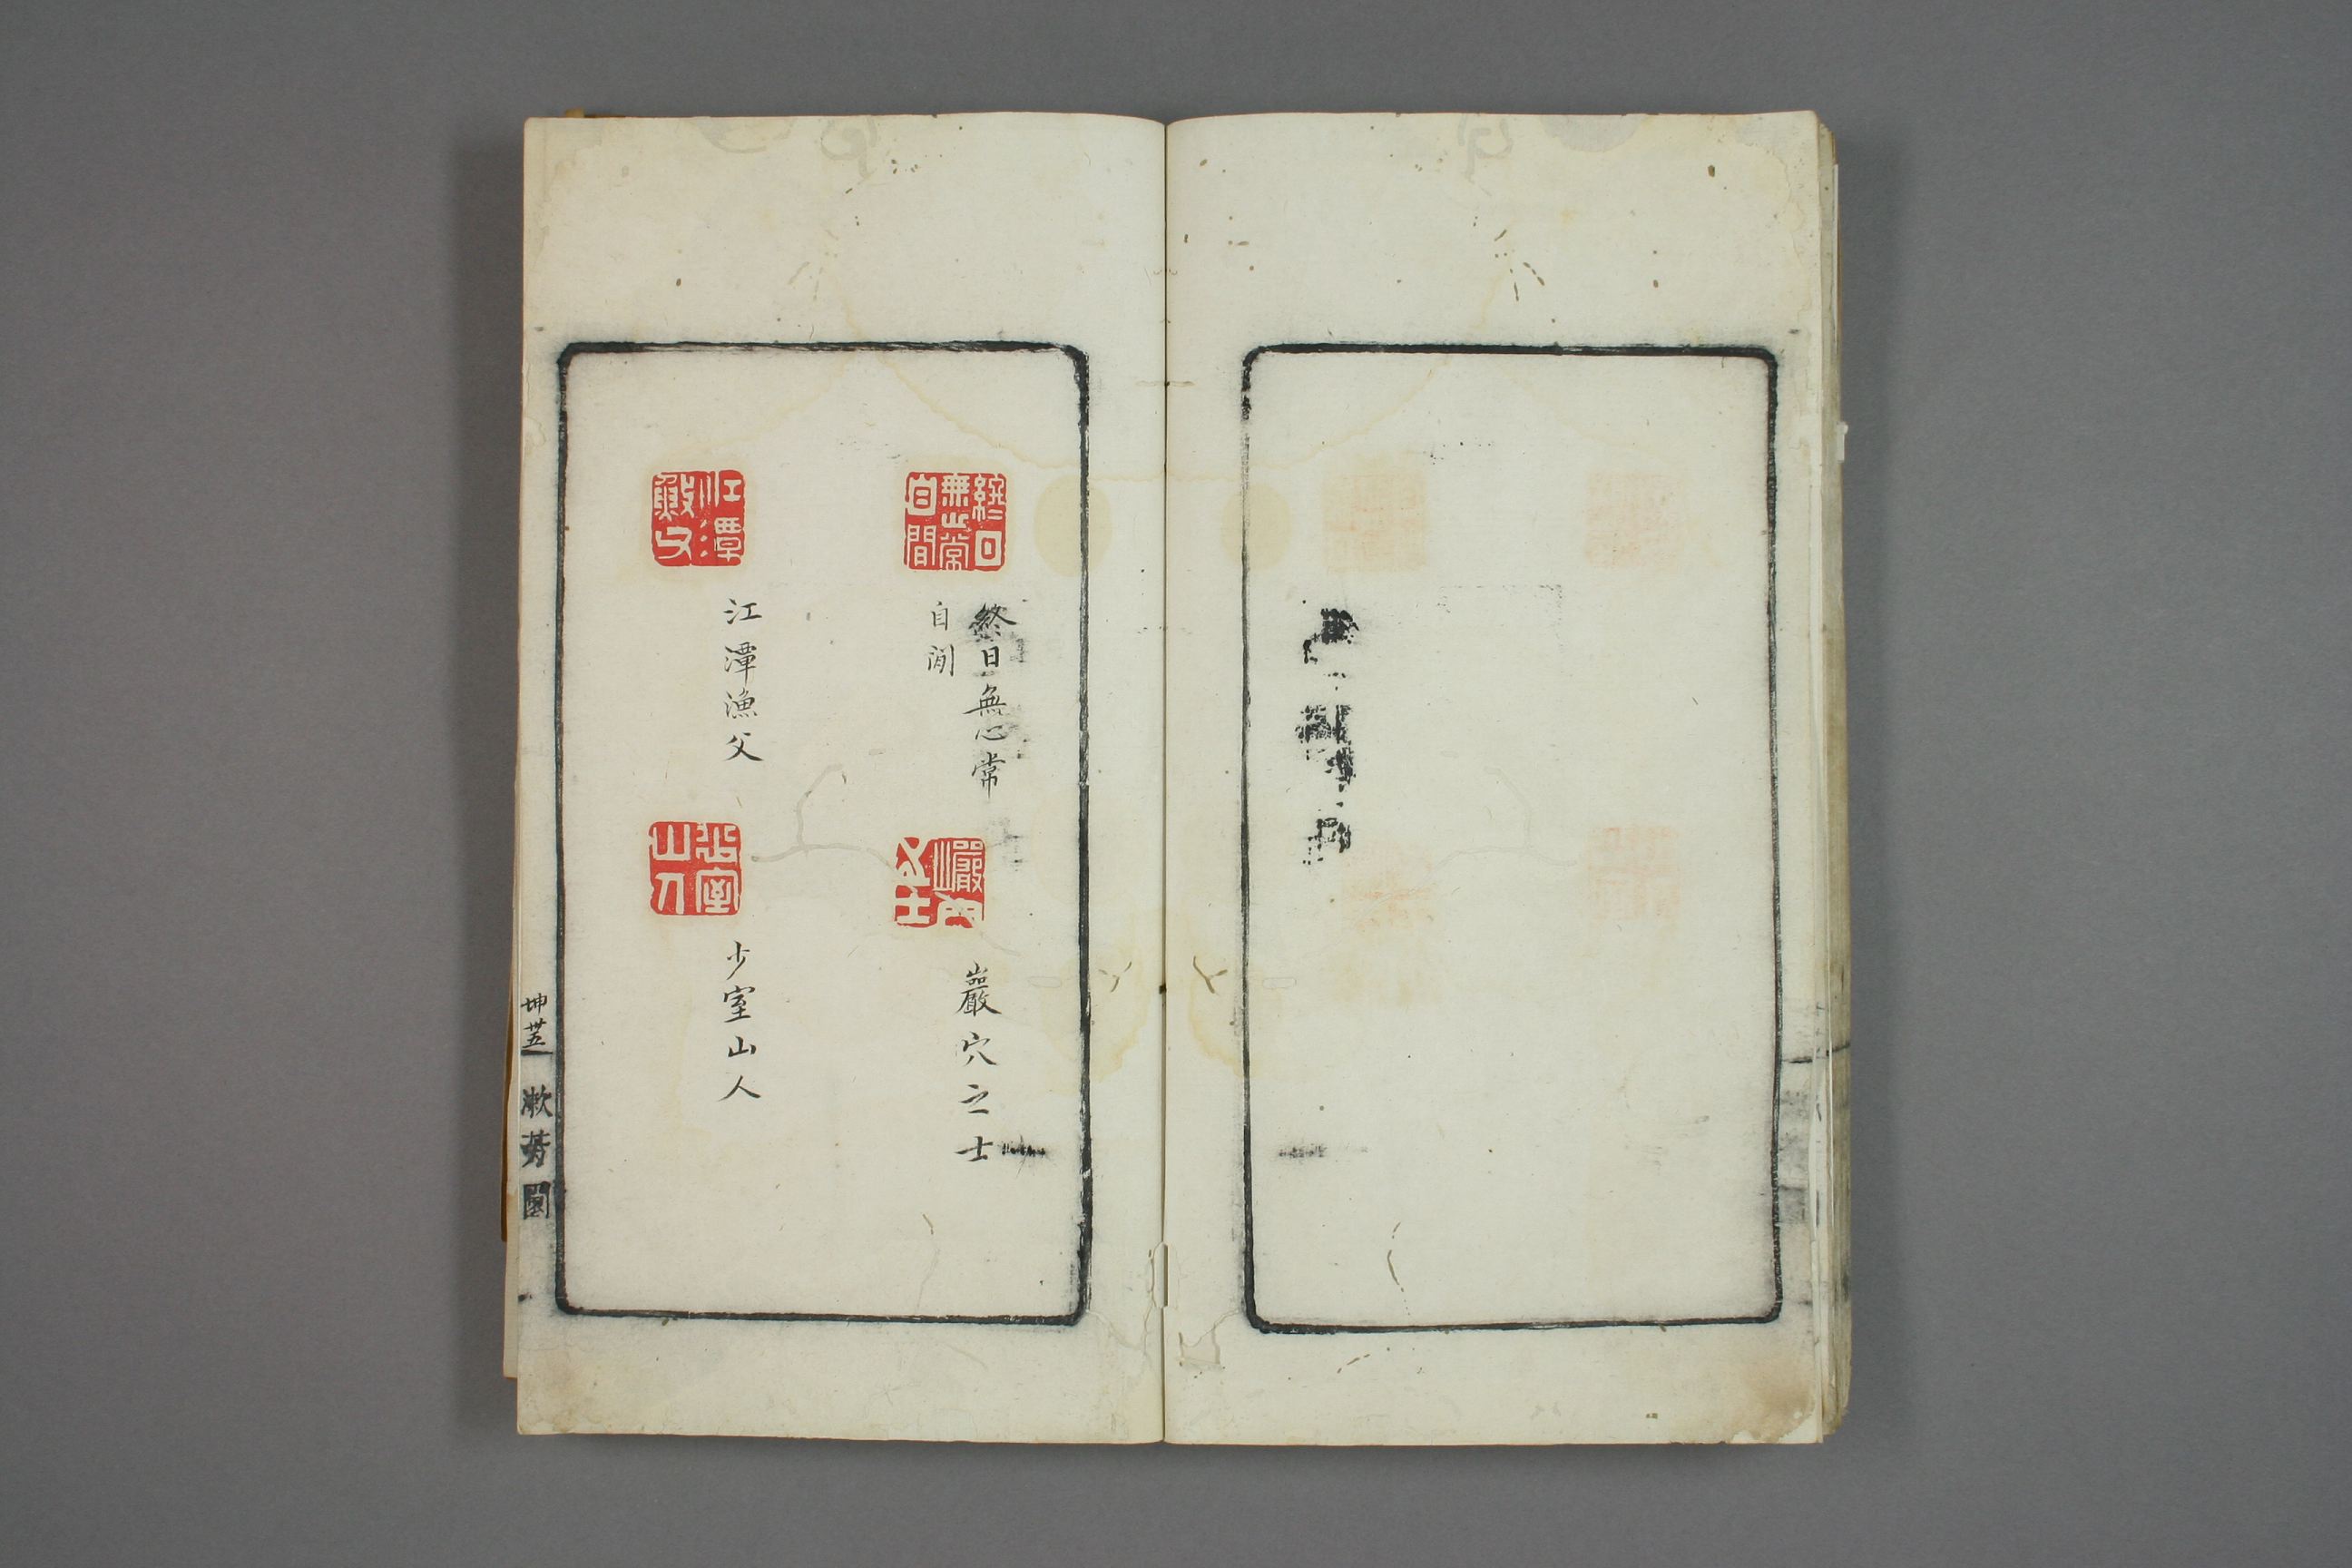 終日無心常
自閒
終日無心常
自閒
巖穴之士
巖穴之士
江潭漁父
江潭漁父
少室山人
少室山人
坤
漱芳園